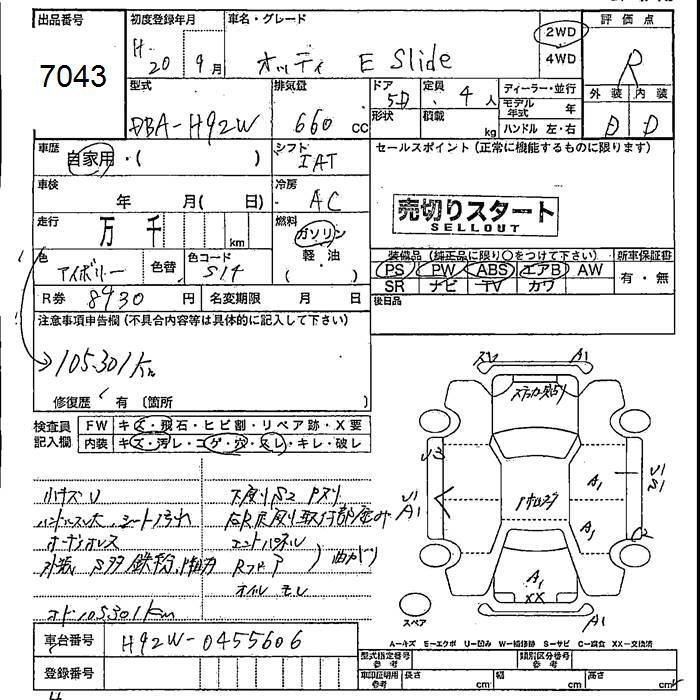 出品番号 初度登録年月 車名・グレード 評価点
7043 H 20 9月 オッティ E Slide 2WD 4WD R
型式 排気量 ドア 形状 定員 積載 ディーラー・並行 外装 内装
DBA-H92W 660 cc 5D 4人 kg モデル年式 年 ハンドル 左・右 D D
車歴 自家用・( ) シフト IAT セールスポイント(正常に機能するものに限ります)
車検 年 月( 日) 冷房 AC
売切りスタート
SELLOUT
走行 万 千 km 燃料 ガソリン 軽・油 ( )
色 アイボリー 色替 色コード S14
装備品(純正品に限り○をつけて下さい) 新車保証書
PS PW ABS エアB AW 有・無
SR ナビ TV カワ
R券 8930円 名変期限 月 日 後日品
注意事項申告欄(不具合内容等は具体的に記入して下さい)
105301Km
修復歴 有 (箇所 )
検査員記入欄 FW キズ・飛石・ヒビ割・リペア跡・X要
内装 キズ・汚レ・コゲ・穴・スレ・キレ・破レ
スレ A1
U3 A1 U1 S1
U1 A1 A1
A1 XX
A1
小キズU
ハンドルスレ大、シート汚れ
オーディオレス
エンドパネル
外装 鉄粉
曲がり
オイルモレ
オド105301Km
スペア
A−キズ E−エクボ U−凹み W−補修跡 S−サビ C−腐食 XX−交換済
車台番号 H92W-0455606
登録番号
型式指定番号 参考 類別区分番号 参考
車印証明用 参考 長さ cm 幅 cm 高さ cm